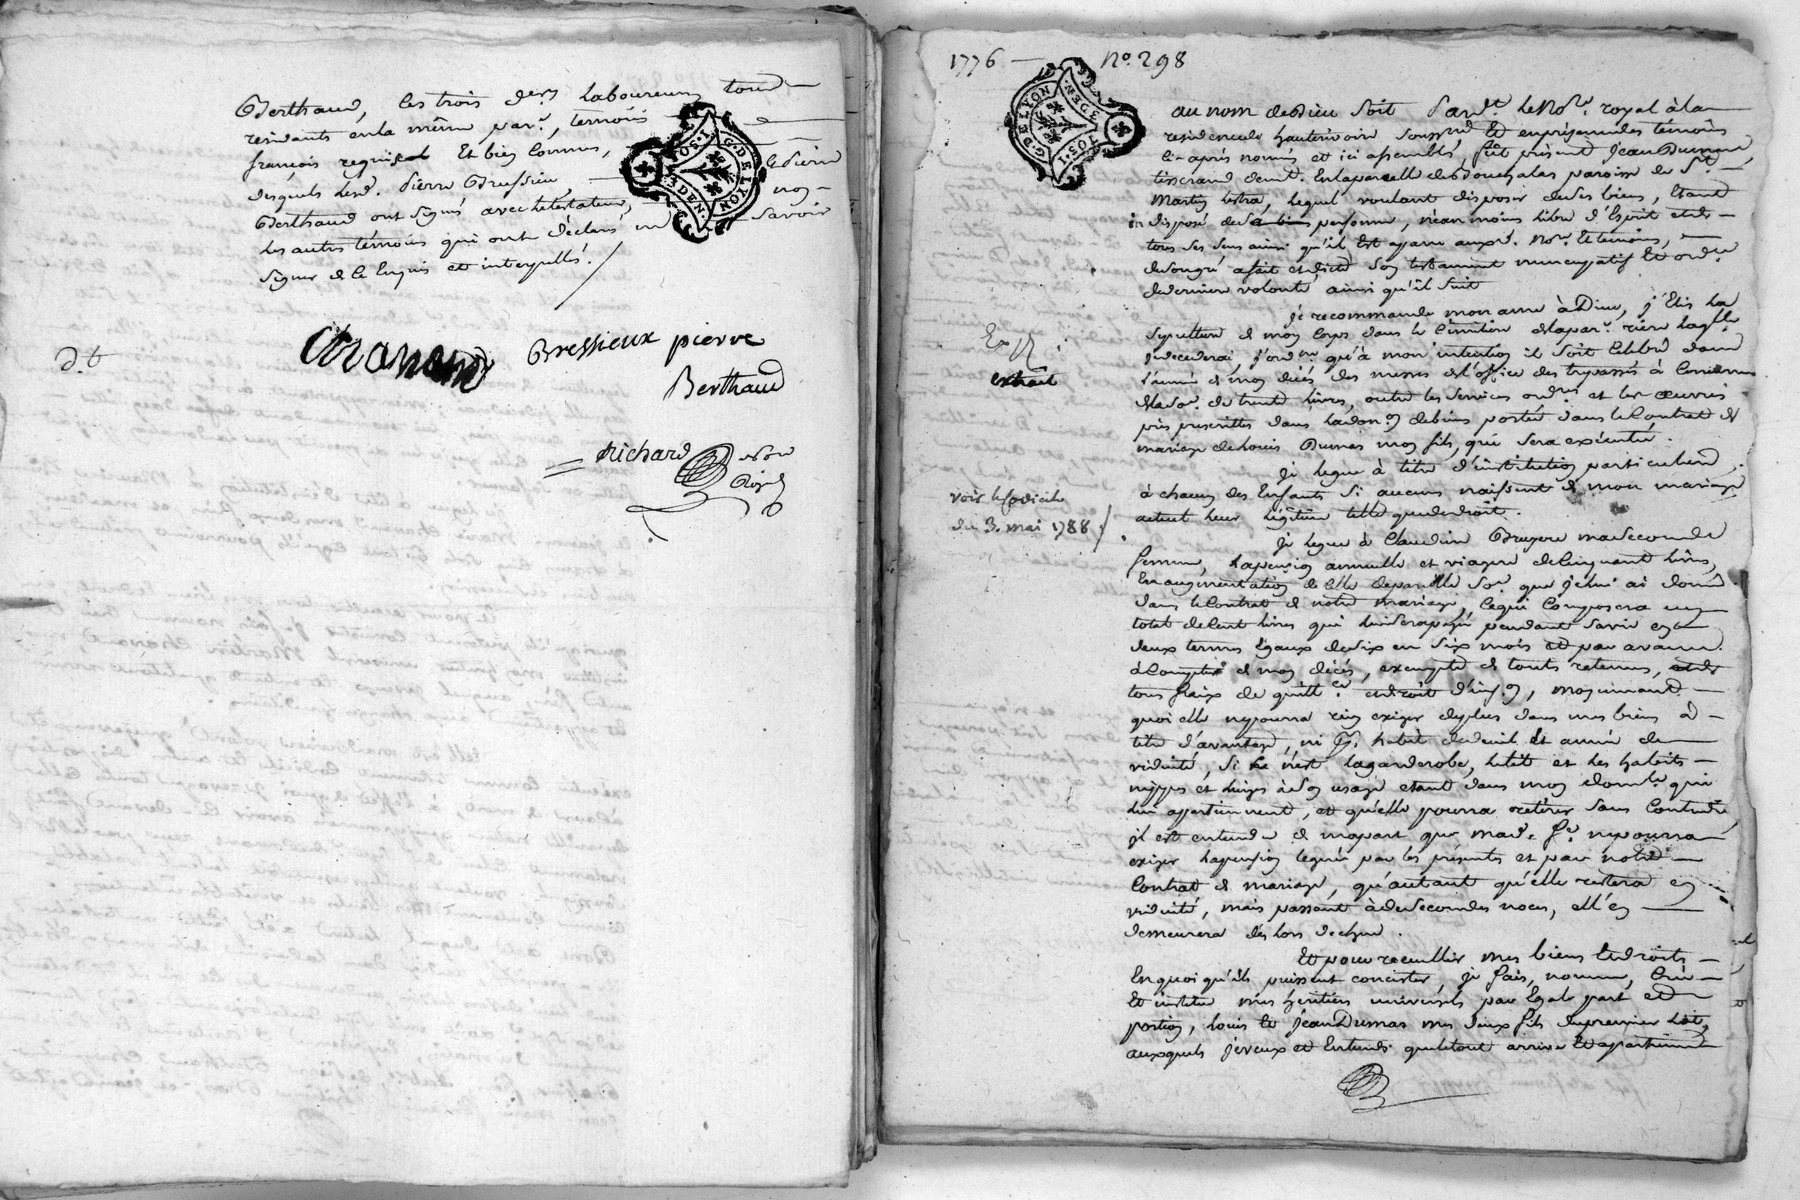 Berthaud, les trois dern. laboureurs tous
residants en la même par.e, temoins
françois requis et bien connus,
desquels led. Pierre Bressieu et Pierre
Berthaud ont signé avec le testateur, non
les autres témoins qui ont déclaré ne savoir
signer de ce enquis et interpellés.
G. DE LYON
1. SOL 3 DEN.
Bressieux pierre
Berthaud
Richard
Not.
Royal
d. t
1776 — N.o 298
G. DE LYON
1. SOL 3 DEN.
Au nom de Dieu soit Pard.t le No.re royal à la
residence de hauterivoire soussigné Et en présence des témoins
ci-après nommés et ici assemblés, fut présent Jean Dumas
tisserand dem.t en la parcelle de paroisse de S.t
Martin lestra, lequel voulant disposer de ses biens, Etant
indisposé de sa personne, néanmoins libre d'Esprit et de
tous ses sens ainsi qu'il Est aparu auxd. No.re Et témoins,
de son gré a fait et dicté son testament nuncupatif Et ord.ce
de derniere volonté ainsi qu'il suit
je recommande mon ame à Dieu, j'Elis la
sepulture de mon corps dans le cimetiere de la par.e riere laq.lle
je decederai, j'ord.ne qu'à mon intention il soit celebré dans
l'année de mon décès des messes de l'office des trepassés à concurrence
de la so.e de trente livres, outre les services ord.res et les œuvres
pies prescrittes dans la don.on de biens portée dans le Contrat de
mariage de Louis Dumas mon fils, qui sera exécutée.
Je legue à titre d'institution particuliere
à chacun des Enfants si aucuns naissent de mon mariage
actuel leur légitime telle que de droit.
Je legue à Claudine Bruyere ma seconde
femme, la pension annuelle et viagere de Cinquante livres,
En augmentation de celle de pareille so.e que je lui ai donné
dans le Contrat de notre mariage, ce qui composera un
total de Cent livres qui lui sera payé pendant sa vie en
deux termes Egaux de six en six mois et par avance
à Compter de mon décès, exempte de toute retenue, et de
tous fraix de quitt.ce et droit d'ins.on, moyennant
quoi elle ne pourra rien exiger de plus dans mes biens à
titre d'avantage, ni p.r habit de deuil et année de
viduité, si ce n'est la garderobe, le lit et les habits
nippes et linges à son usage etant dans mon dom.le qui
lui appartiennent, et qu'elle pourra retirer sans contredit,
il est entendu de ma part que mad. f.e ne pourra
exiger la pension leguée par les présentes et par notre
Contrat de mariage, qu'autant qu'elle restera en
viduité, mais passant à de secondes noces, ell'en
demeurera dès lors dechue.
Et pour recueillir mes biens et droits
En quoi qu'ils puissent concister, je fais, nomme, Crée
Et institue mes heritiers universels par Egale part et
portion, Louis Et Jean Dumas mes deux fils du premier lit,
auxquels je veux et Entends que le tout arrive Et apartienne
extrait
voir le codicile
du 3. mai 1788